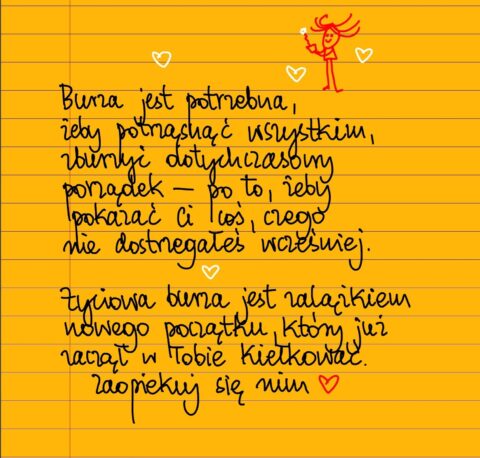 Burza jest potrzebna,
żeby potrząsnąć wszystkim,
zburzyć dotychczasowy
porządek – po to, żeby
pokazać Ci coś, czego
nie dostrzegałeś wcześniej.
Życiowa burza jest zalążkiem
nowego początku, który już
zaczął w Tobie kiełkować.
Zaopiekuj się nim